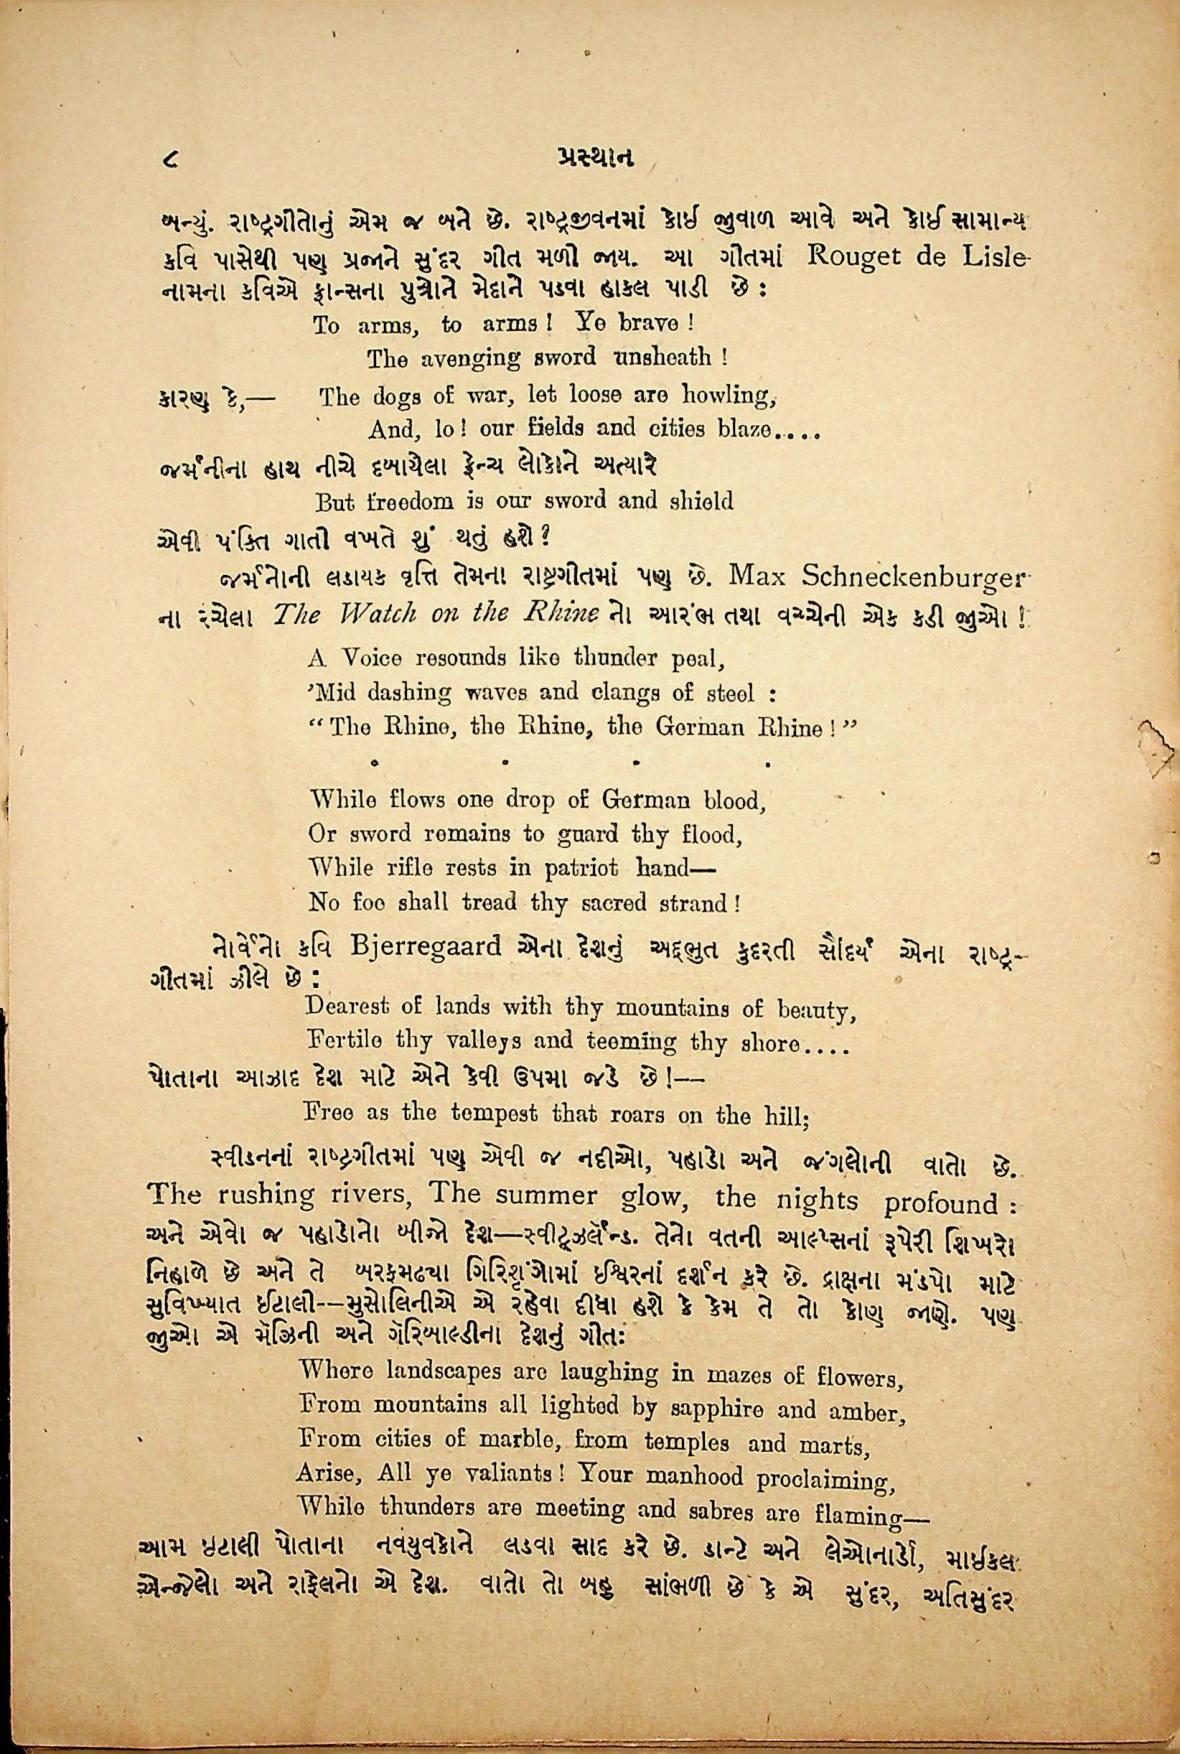 ૮ પ્રસ્થાન
બન્યું. રાષ્ટ્રગીતોનું એમ જ બને છે. રાષ્ટ્રજીવનમાં કોઈ જુવાળ આવે અને કોઈ સામાન્ય
કવિ પાસેથી પણ પ્રજાને સુંદર ગીત મળી જાય. આ ગીતમાં Rouget de Lisle
નામના કવિએ ફ્રાન્સના પુત્રોને મેદાને પડવા હાકલ પાડી છે :
To arms, to arms! Ye brave!
The avenging sword unsheath!
કારણ કે,— The dogs of war, let loose are howling,
And, lo! our fields and cities blaze....
જર્મનીના હાથ નીચે દબાયેલા ફ્રેન્ચ લોકોને અત્યારે
But freedom is our sword and shield
એવી પંક્તિ ગાતી વખતે શું થતું હશે?
જર્મનોની લડાયક વૃત્તિ તેમના રાષ્ટ્રગીતમાં પણ છે. Max Schneckenburger
ના રચેલા The Watch on the Rhine નો આરંભ તથા વચ્ચેની એક કડી જુઓ!
A Voice resounds like thunder peal,
'Mid dashing waves and clangs of steel :
“The Rhine, the Rhine, the German Rhine!”
. . . .
While flows one drop of German blood,
Or sword remains to guard thy flood,
While rifle rests in patriot hand—
No foe shall tread thy sacred strand!
નોર્વેનો કવિ Bjerregaard એના દેશનું અદ્દભુત કુદરતી સૌંદર્ય એના રાષ્ટ્ર-
ગીતમાં ઝીલે છે :
Dearest of lands with thy mountains of beauty,
Fertile thy valleys and teeming thy shore....
પોતાના આઝાદ દેશ માટે એને કેવી ઉપમા જડે છે!—
Free as the tempest that roars on the hill;
સ્વીડનનાં રાષ્ટ્રગીતમાં પણ એવી જ નદીઓ, પહાડો અને જંગલોની વાતો છે.
The rushing rivers, The summer glow, the nights profound :
અને એવો જ પહાડોનો બીજો દેશ—સ્વીટ્ઝર્લૅન્ડ. તેનો વતની આલ્પ્સનાં રૂપેરી શિખરો
નિહાળે છે અને તે બરફમઢ્યા ગિરિશૃંગોમાં ઈશ્વરનાં દર્શન કરે છે. દ્રાક્ષના મંડપો માટે
સુવિખ્યાત ઈટાલી--મુસોલિનીએ એ રહેવા દીધા હશે કે કેમ તે તો કોણ જાણે. પણ
જુઓ એ મૅઝિની અને ગૅરિબાલ્ડીના દેશનું ગીત:
Where landscapes are laughing in mazes of flowers,
From mountains all lighted by sapphire and amber,
From cities of marble, from temples and marts,
Arise, All ye valiants! Your manhood proclaiming,
While thunders are meeting and sabres are flaming—
આમ ઇટાલી પોતાના નવયુવકોને લડવા સાદ કરે છે. ડાન્ટે અને લેઓનાર્ડો, માઈકલ
એન્જેલો અને રાફેલનો એ દેશ. વાતો તો બહુ સાંભળી છે કે એ સુંદર, અતિસુંદર